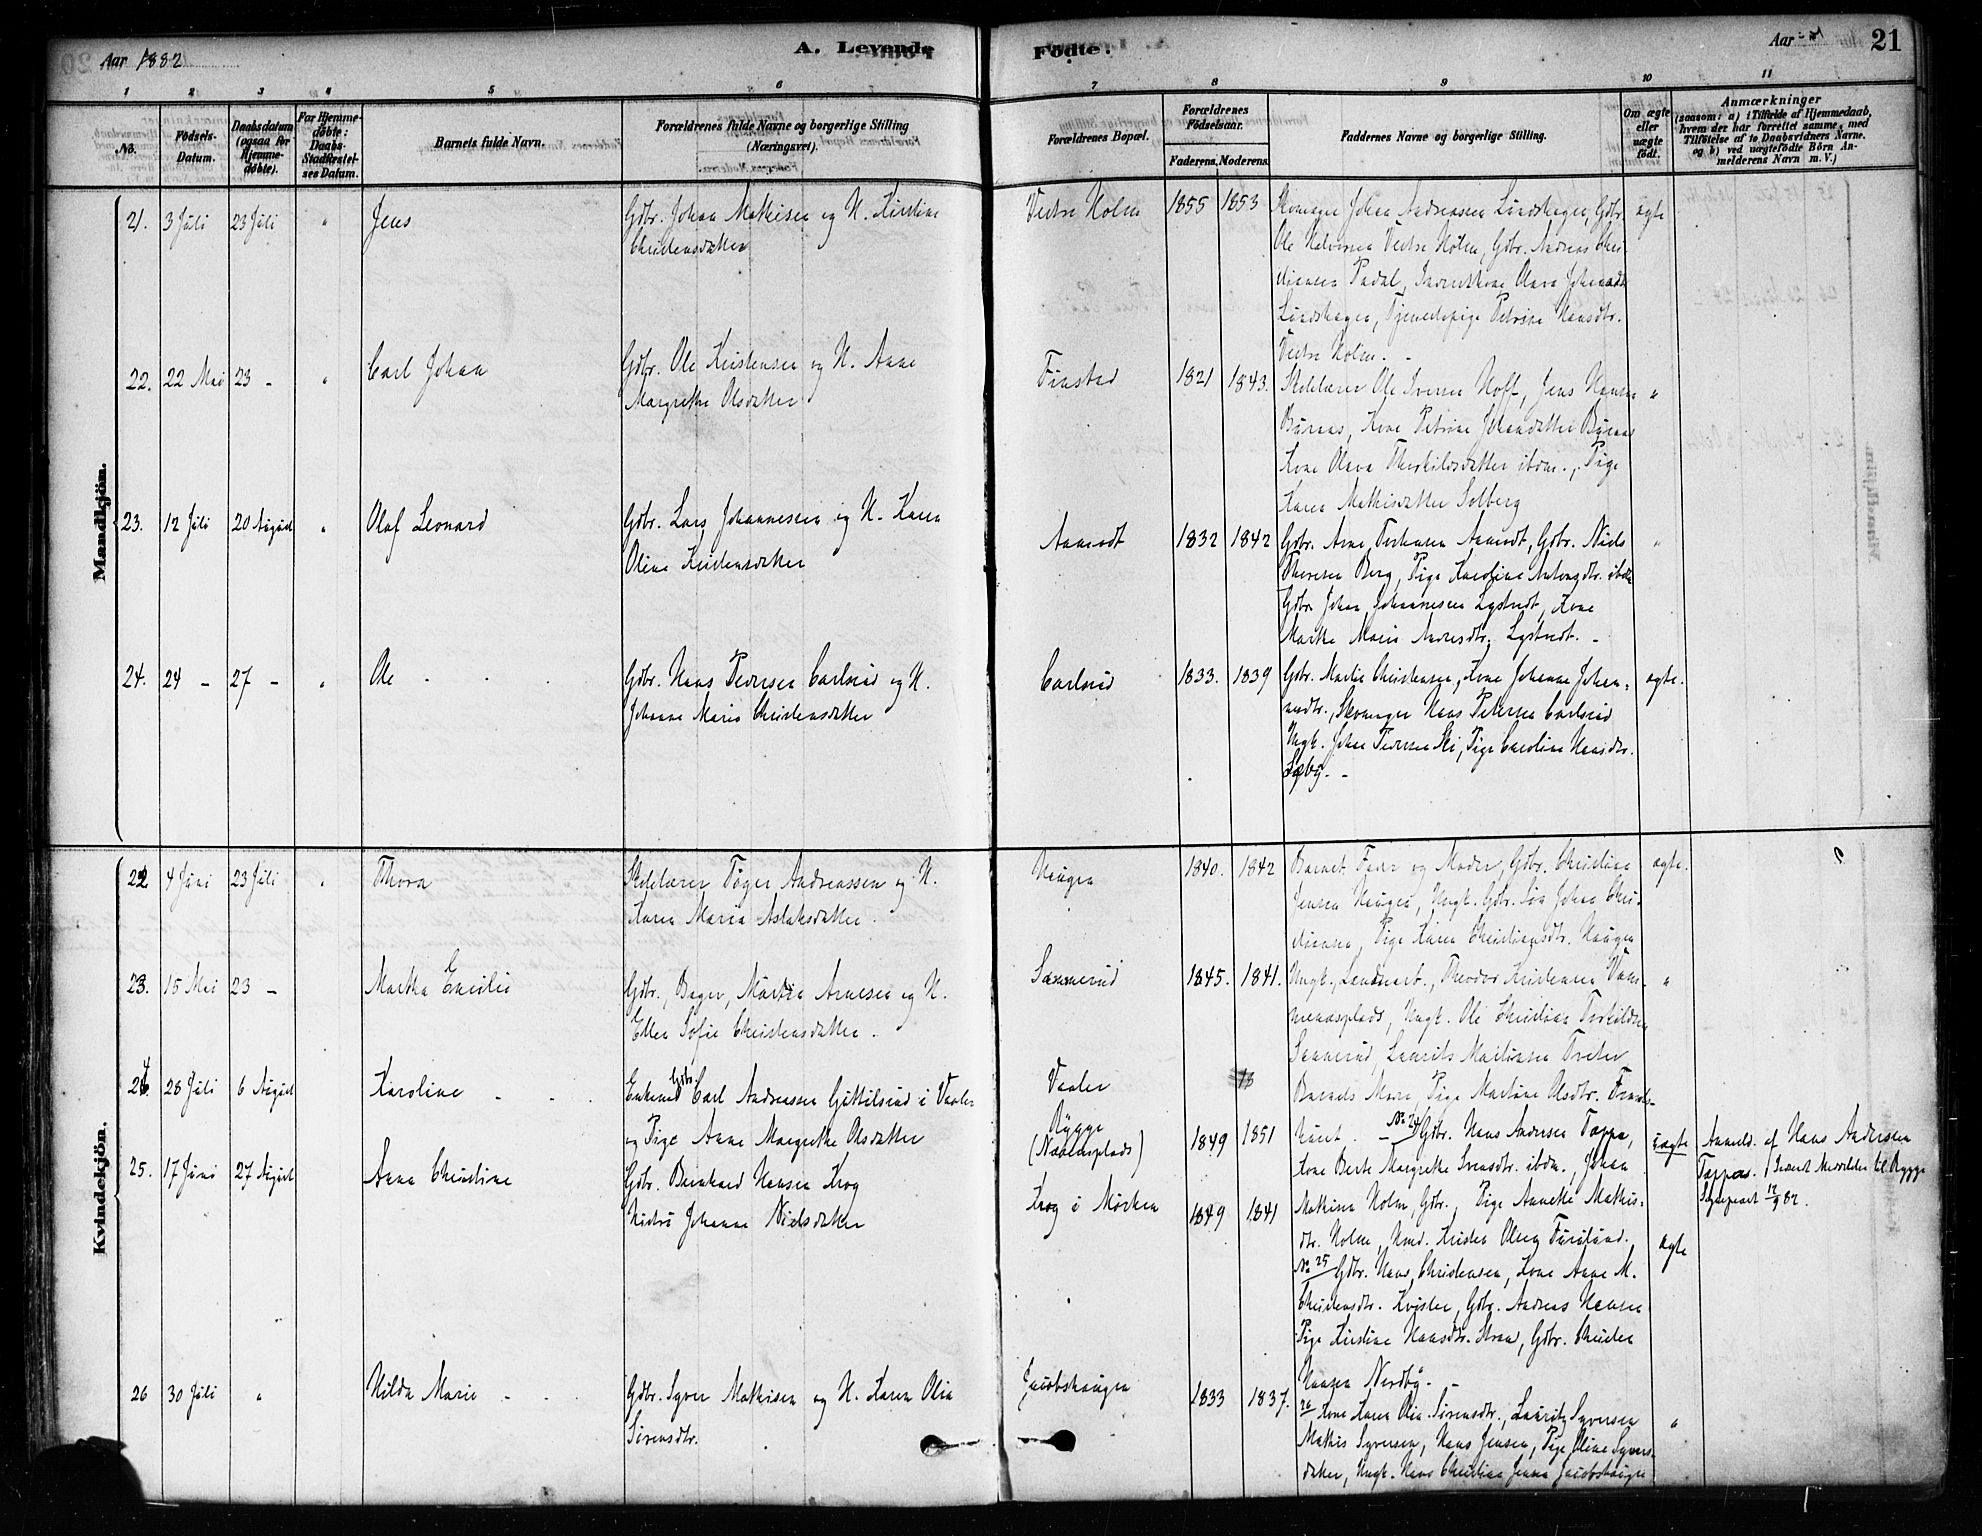 Aar 1882
A. Levende
Fødte.
Aar
21
1 2 3 4 5 6 7 8 9 10 11
No.
Fødsels-Datum.
Daabsdatum (ogsaa for Hjemmedøbte).
Far Hjemmedøbte: Daabs-Stadfæstelses Datum.
Barnets fulde Navn.
Forældrenes fulde Navne og borgerlige Stilling (Næringsvei).
Forældrenes Bopæl.
Forældrenes Fødselsaar.
Faderens. Moderens.
Faddernes Navne og borgerlige Stilling.
Om ægte eller uægte født.
Anmærkninger
(saasom: a) i Tilfælde af Hjemmedaab, hvem der har forrettet samme, med Tilføielse af to Daabsvidners Navne. og b) ved uægtefødte Børn Anmelderens Navn m. V.)
Mandkjön.
21. 3 Juli 23 Juli " Jens
Gdbr. Johan Mathisen og H. Kirstine
Christensdatter
Vestre Holm 1855 1853
Skomager Johan Andreassen Lundskagen, Gdbr.
Ole Halvorsen Vestre Holm, Gdbr. Andreas Chri
stiansen
Lundskagen, Tjenestepige Petrine Hansdtr.
Vestre Holm. -
ægte
22. 22 Mai 23 - " Carl Johan
Gdbr. Ole Kristensen og H. Anne
Margrethe Olsdatter
Finstad 1821 1843.
Skolelærer Ole Iversen Hoff, Jens Hansen
Buraas, Kone Petrine Johansdatter Buraas
Kone Olava Thorkildsdatter ibdm., Pige
Karen Mathisdatter Solberg
"
23. 12 Juli 20 August " Olaf Leonard
Gdbr. Lars Johannessen og H. Karen
Oline Kristensdatter
Aamodt 1832 1842
Gdbr. Arne Aamodt, Gdbr. Niels
Thoresen Berg, Pige Karoline Antonsdtr. ibdm
Gdbr. Johan Johannesen Lystvedt, Kone
Marthe Marie Andresdtr. Lystvedt. -
"
24. 24 - 27 - " Ole - -
Gdbr. Hans Pedersen Carlsrud og H.
Johanne Marie Christensdatter
Carlsrud 1833. 1839
Gdbr. Martin Christensen, Kone Johanne Johan-
nesdtr., Skomager Hans Petersen Carlsrud
Ungk. Johan Pedersen Ski, Pige Caroline Hansdtr.
Sæby. -
ægte.
Kvindekjön.
22 4 Juni 23 Juli " Thora
Skolelærer Töger Andreassen og H.
Karen Maria Aslaksdatter.
Haugen 1840. 1842
Barnets Fader og Moder, Gdbr. Christian
Jensen Haugen, Ungk. Gdbr. Søn Johan Chri-
stiansen, Pige Karen Christiansdtr. Haugen
ægte.
23. 15 Mai 23 - Martha Emilie
Gdbr., Bager, Martin Arnesen og H.
Ellen Sofie Christensdatter.
Sannerud 1845. 1841.
Ungk. Theodor Kristensen
Ungk. Ole Christian Torkildsen
Sannerud, Laurits Martinsen Tveter
"
24 28 Juli 6 August Karoline - -
Enkemand Gdbr. Carl Andreassen Gittilsrud i Vaaler
og Pige Anne Margrethe Olsdatter
Vaaler
Rygge
1849 1851
Barnets Moder, Pige Martine Olsdtr.
No 24 Gdbr. Hans Andersen Tappa,
Kone Berte Margrethe Svendsdtr. ibdm., Johan
Mathisen Holm, Gdbr., Pige Annette Mathis-
dtr. Holm
uægte
Anmeldt af Hans Andersen
Tappa. Indsendt Meddelelse til Rygge
Sogneprest 12/9 82.
25. 17 Juni 27 August Anna Christine
Gdbr. Bernhard Hansen Krog
Hustru Johanne Nielsdatter
Krog i Mörken 1849 1841
No 25 Gdbr. Hans Christensen, Kone Anne M.
Christensdtr. Kvisler, Gdbr. Andreas Hansen
Pige Kirstine Hansdtr. Gdbr. Christen
Hansen Nordby. -
ægte
26 30 Juli " Hilda Marie - -
Gdbr. Syver Mathisen og H. Karen Olia
Sörensdtr.
Jacobshaugen 1833 1837.
26 Kone Karen Olia Sörensdtr., Lauritz Syversen
Mathis Syversen, Hans Jensen, Pige Oline Syvers-
datter, Ungk. Hans Christian Jensen Jacobshaugen
"